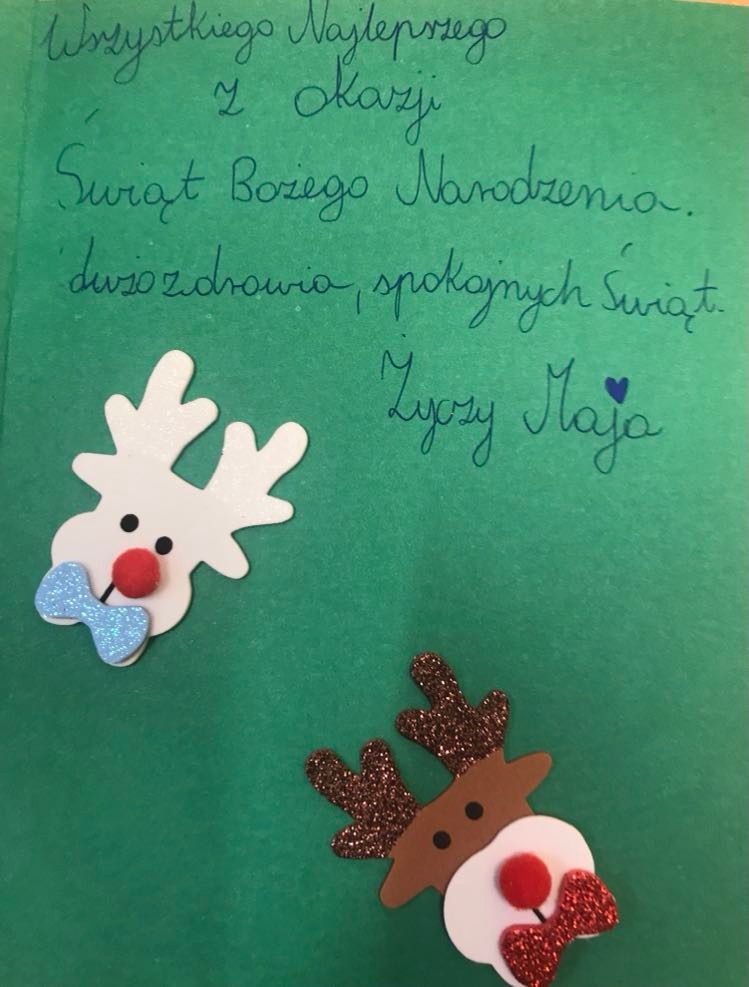 Wszystkiego Najlepszego
z okazji
Świąt Bożego Narodzenia.
dużo zdrowia, spokojnych Świąt.
Życzy Maja